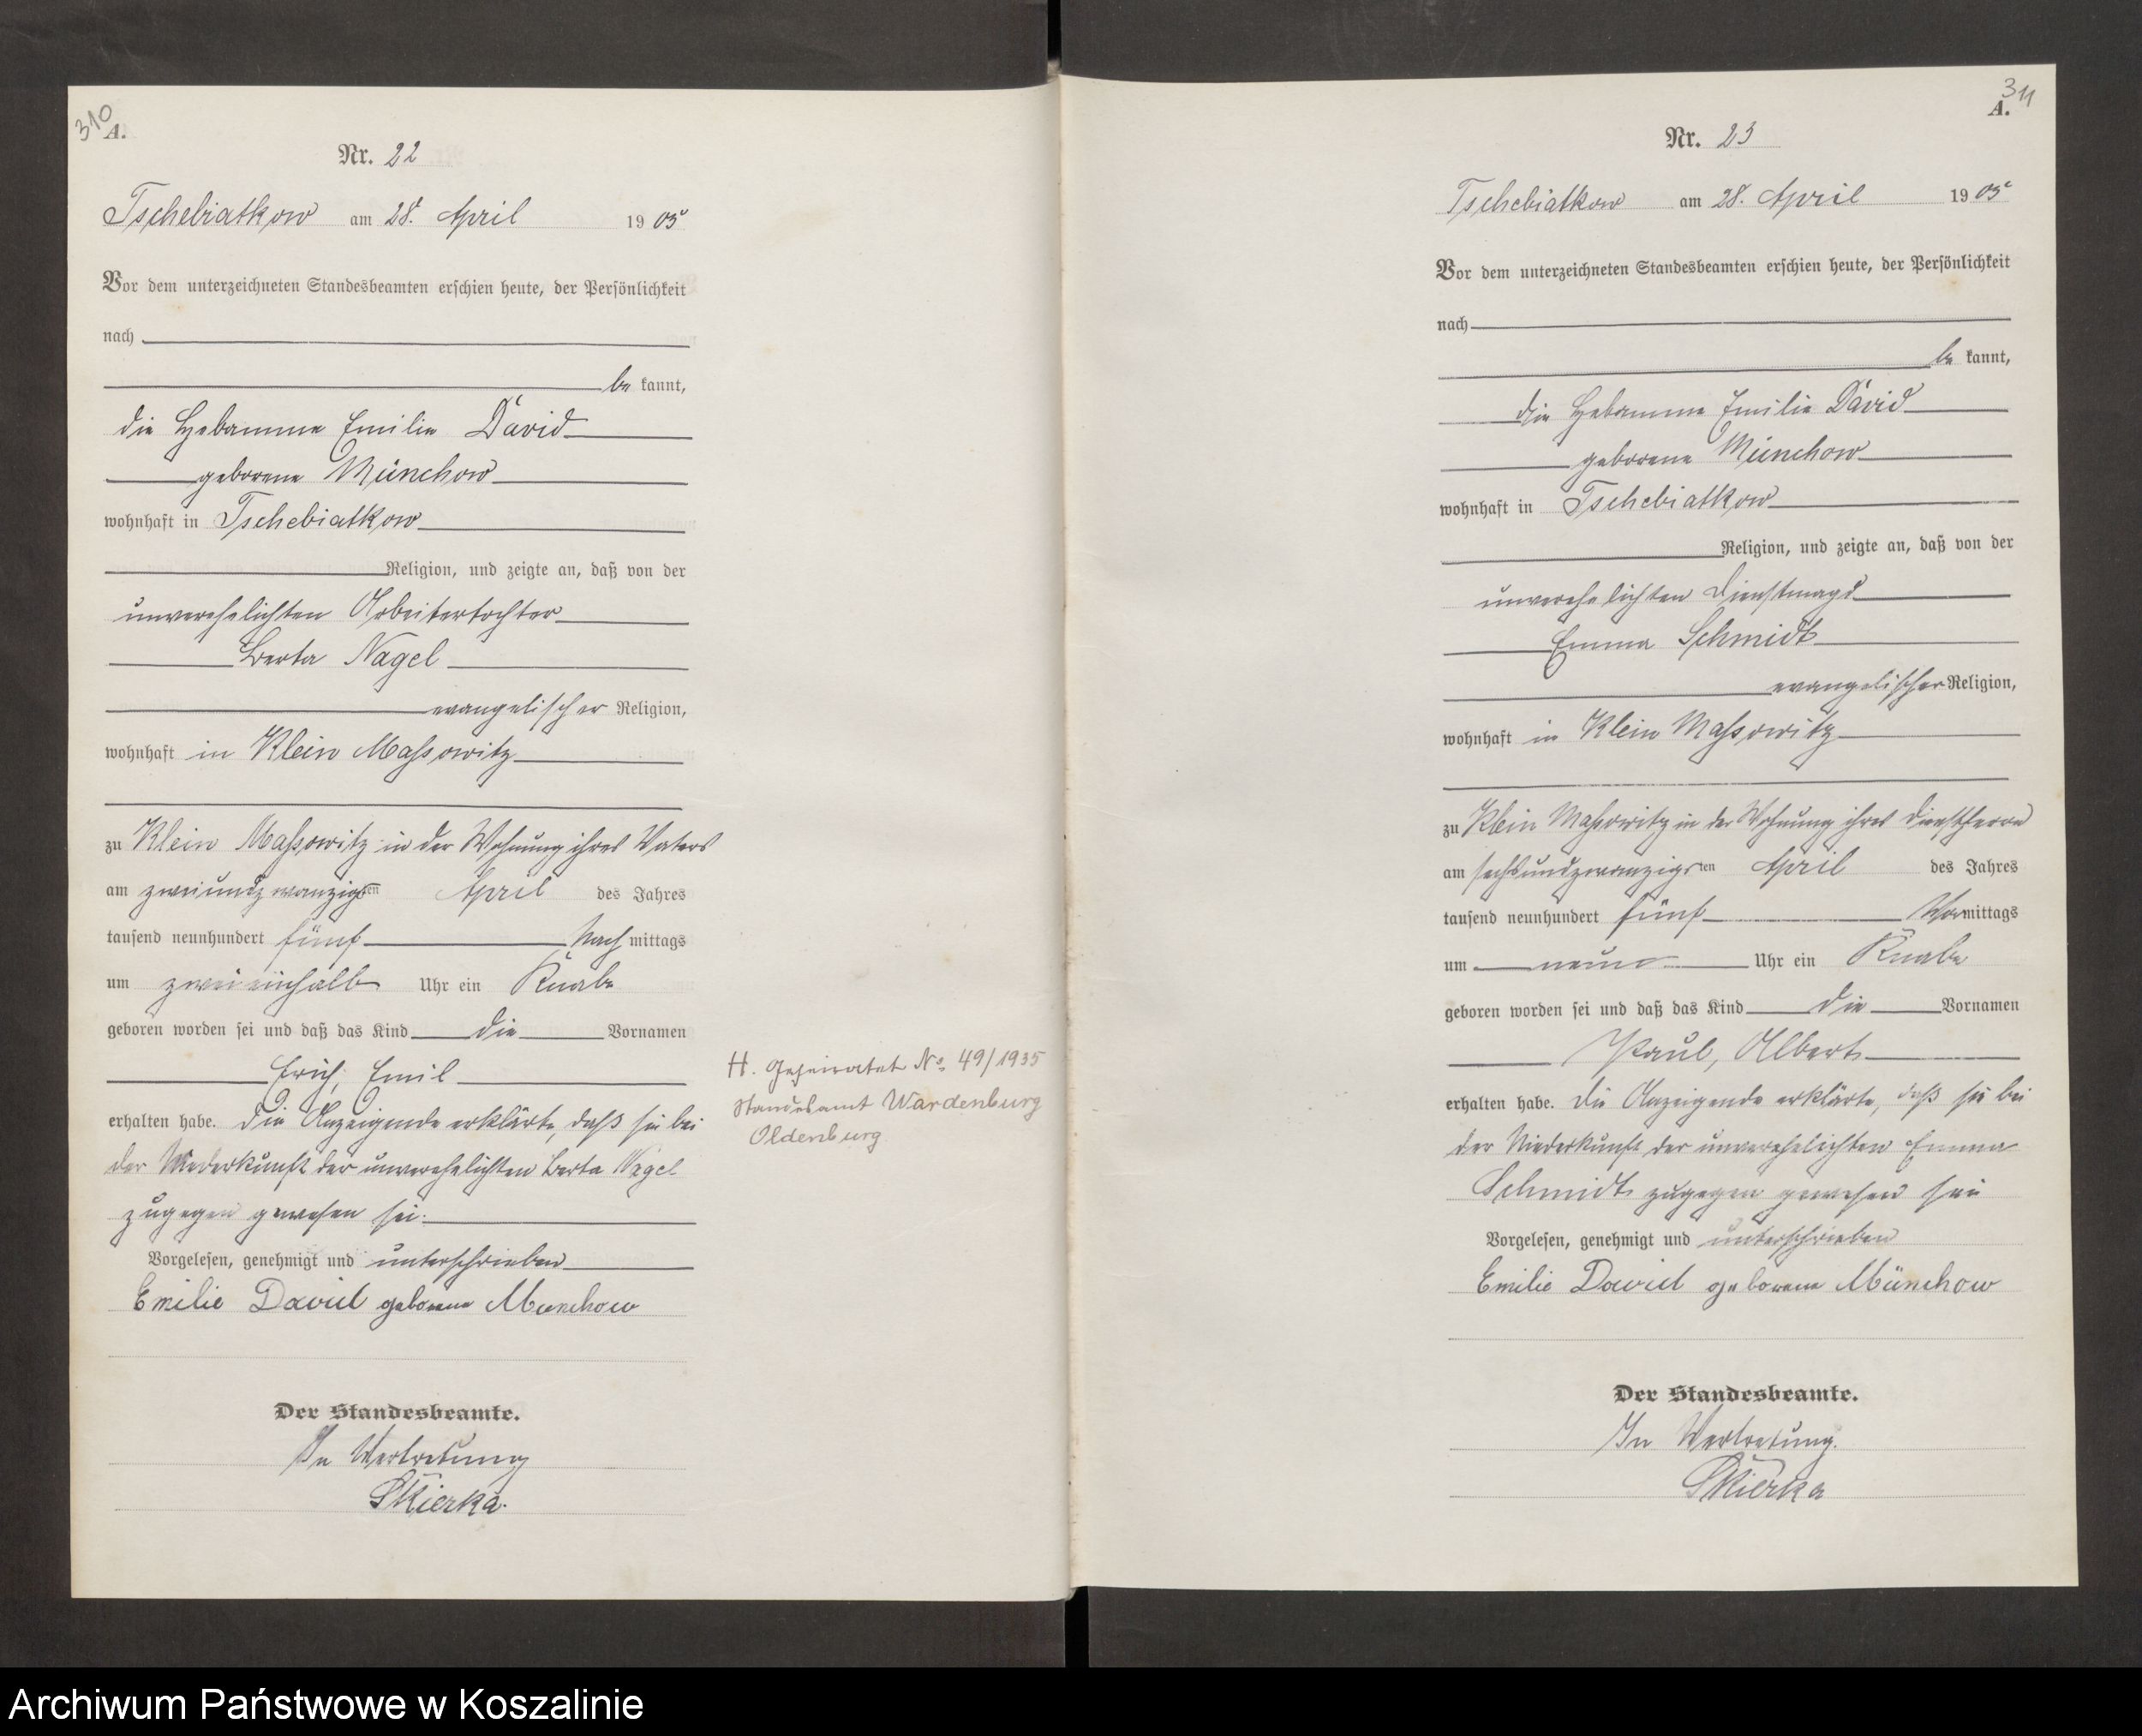 310
A.
Nr. 22
Tschebiatkow am 28. April 1905
Vor dem unterzeichneten Standesbeamten erschien heute, der Persönlichkeit
nach
be kannt,
die Hebamme Emilie David
geborene Münchow
wohnhaft in Tschebiatkow
Religion, und zeigte an, daß von der
unverehelichten Arbeitertochter
Berta Nagel
evangelischer Religion,
wohnhaft in Klein Massowitz
zu Klein Massowitz in der Wohnung ihres Vaters
am zweiundzwanzigsten April des Jahres
tausend neunhundert fünf Nachmittags
um zweieinhalb Uhr ein Knabe
geboren worden sei und daß das Kind die Vornamen
Erich, Emil
erhalten habe. Die Anzeigende erklärte, daß sie bei
der Niederkunft der unverehelichten Berta Nagel
zugegen gewesen sei.
Vorgelesen, genehmigt und unterschrieben
Emilie David geborene Munchow
Der Standesbeamte.
In Vertretung
Skierka.
H. Geheiratet No. 49/1935
Standesamt Wardenburg
Oldenburg
311
A.
Nr. 23
Tschebiatkow am 28. April 1905
Vor dem unterzeichneten Standesbeamten erschien heute, der Persönlichkeit
nach
be kannt,
die Hebamme Emilie David
geborene Münchow
wohnhaft in Tschebiatkow
Religion, und zeigte an, daß von der
unverehelichten Dienstmagd
Emma Schmidt
evangelischer Religion,
wohnhaft in Klein Massowitz
zu Klein Massowitz in der Wohnung ihres Dienstherrn
am sechsundzwanzigsten April des Jahres
tausend neunhundert fünf Vormittags
um neun Uhr ein Knabe
geboren worden sei und daß das Kind die Vornamen
Paul, Albert
erhalten habe. Die Anzeigende erklärte, daß sie bei
der Niederkunft der unverehelichten Emma
Schmidt zugegen gewesen sei
Vorgelesen, genehmigt und unterschrieben
Emilie David geborene Münchow
Der Standesbeamte.
In Vertretung.
Skierka
Archiwum Państwowe w Koszalinie